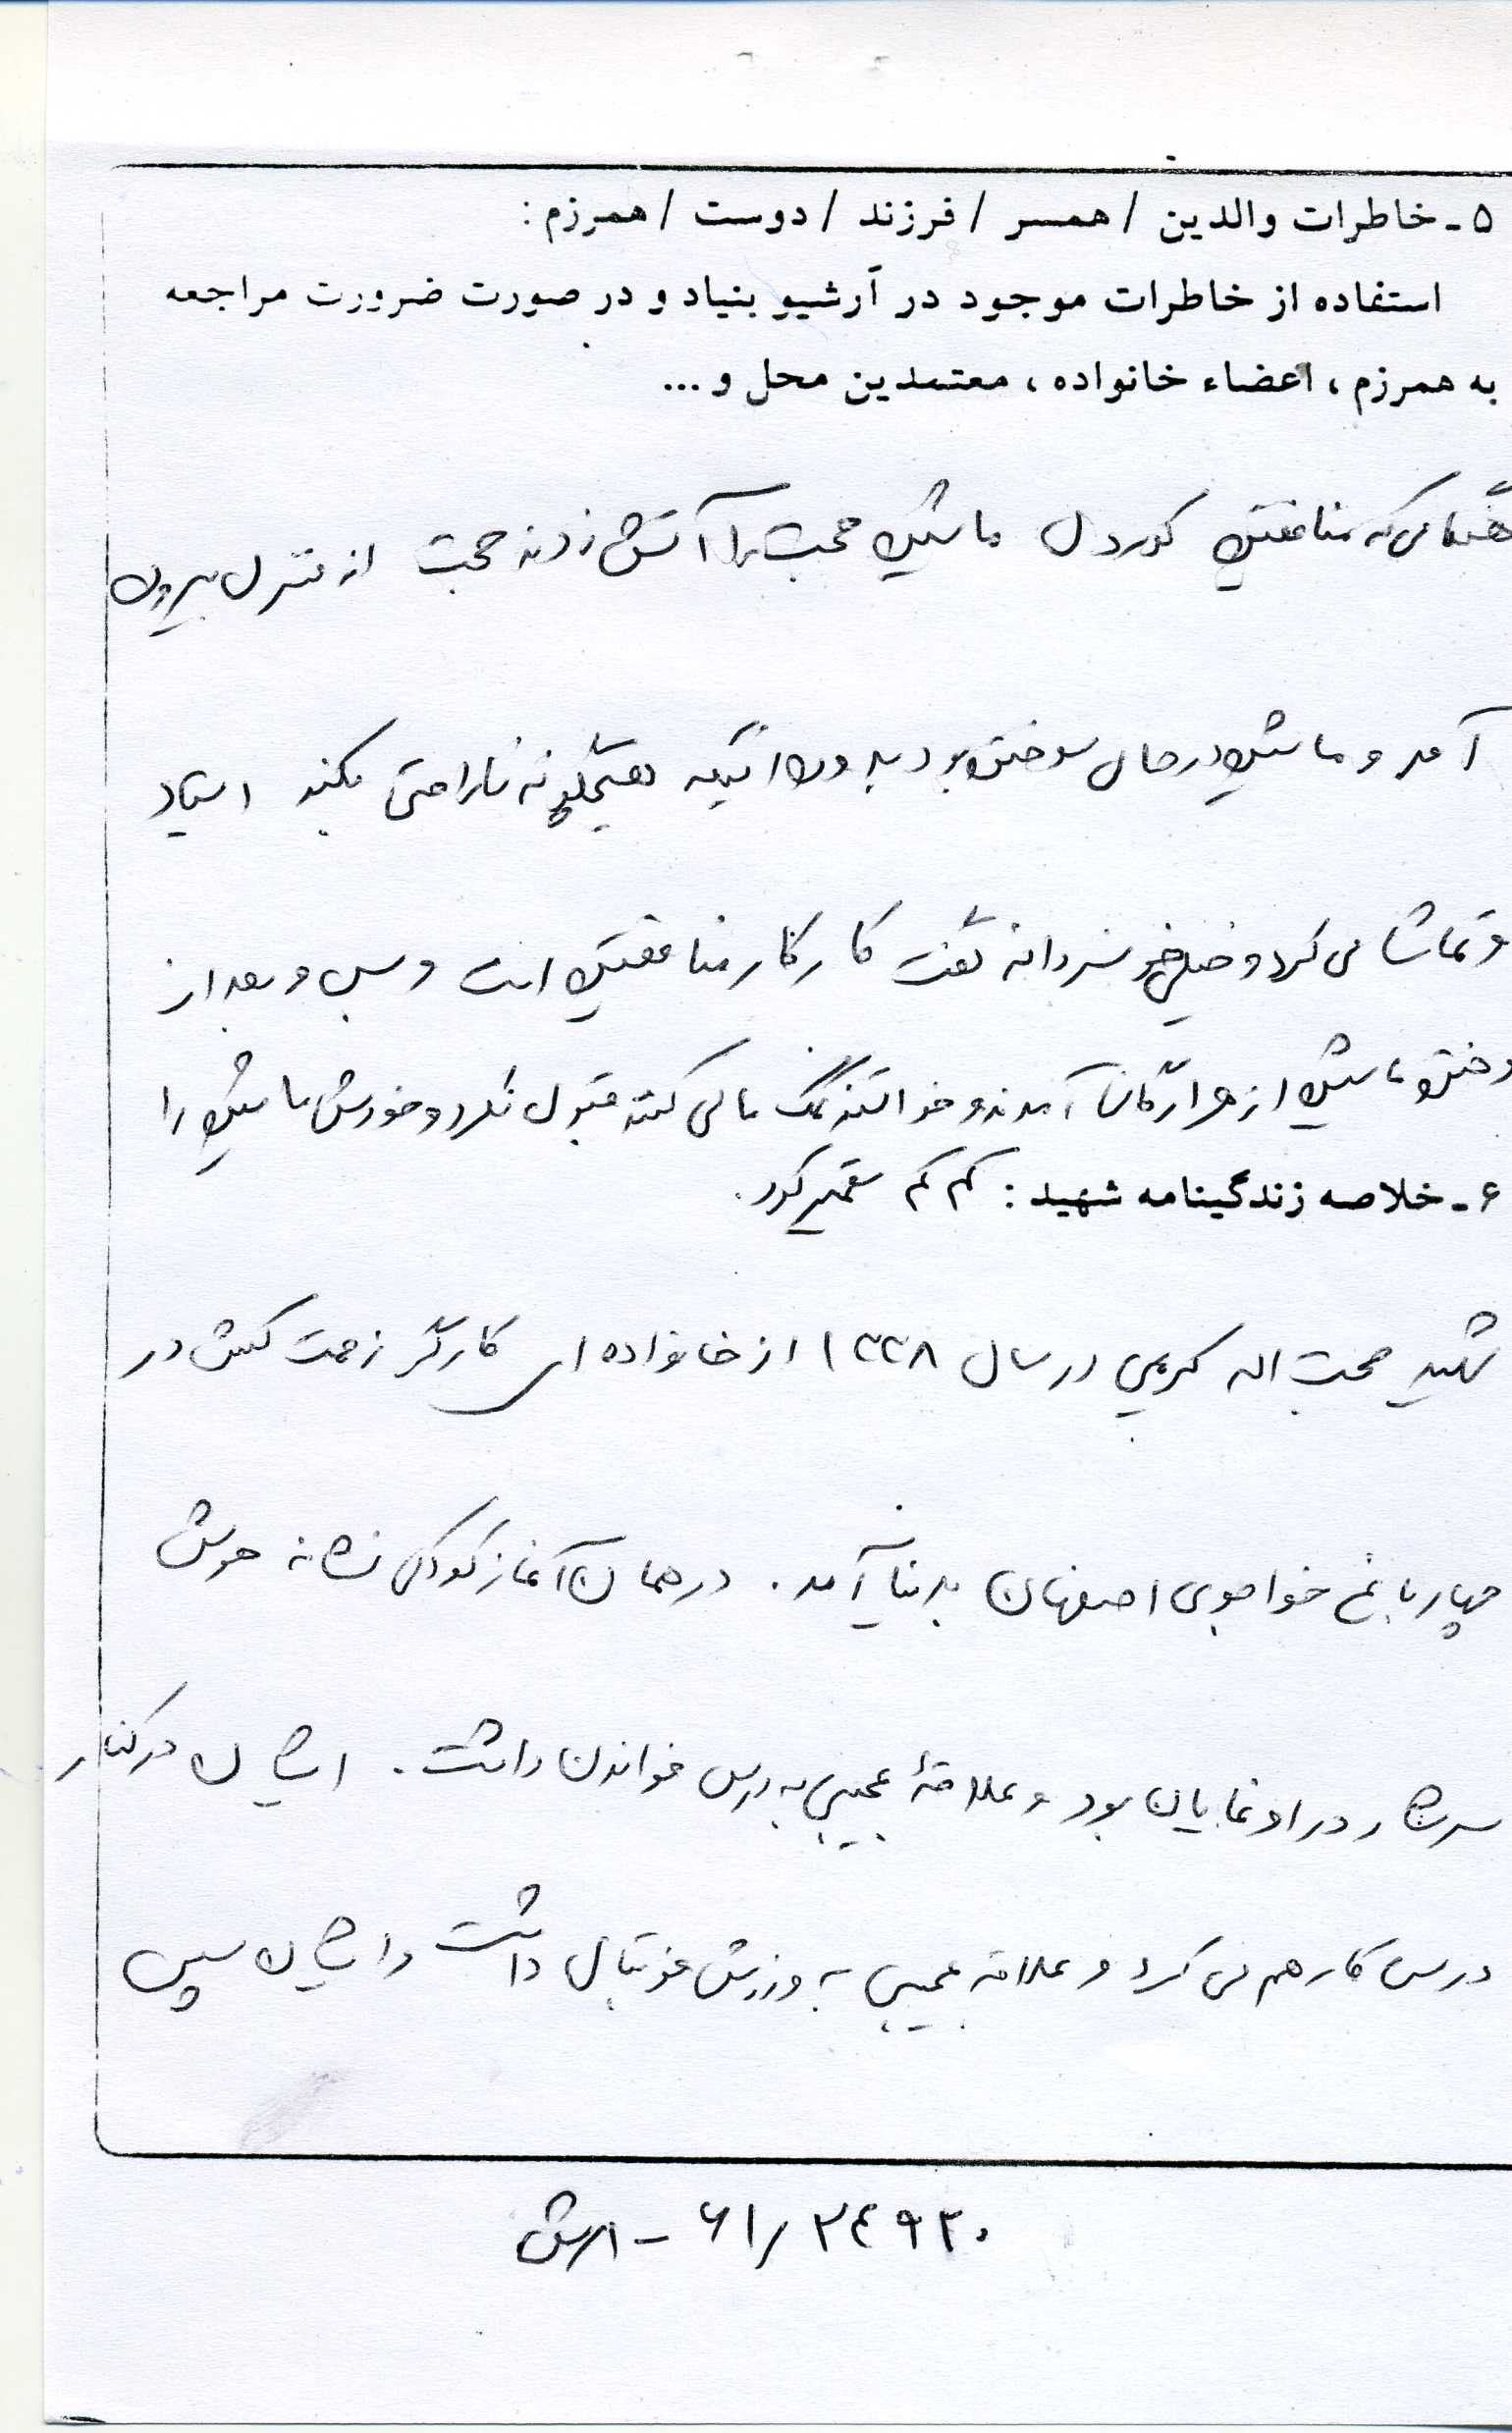 ۵ - خاطرات والدین / همسر / فرزند / دوست / همرزم :
استفاده از خاطرات موجود در آرشیو بنیاد و در صورت ضرورت مراجعه
به همرزم ، اعضاء خانواده ، معتمدین محل و ...
هنگامی که منافقین کوردل ماشین حجت را آتش زدند حجت از منزل بیرون
آمد و ماشین در حال سوختن بود بدون اینکه هیچگونه ناراحتی بکند ایستاد
و تماشا می کرد و خیلی خونسردانه گفت کار کار منافقین است و بس و بعد از
سوختن ماشین از هر ارگان آمدند و خواستند کمک مالی کنند قبول نکرد و خودش ماشین را
۶ - خلاصه زندگینامه شهید : کم کم تعمیر کرد .
شهید حجت اله کریمی در سال ۱۳۳۸ از خانواده ای کارگر زحمت کش در
چهارباغ خواجوی اصفهان بدنیا آمد . در همان آغاز کودکی نشانه هوش
سرشار در او نمایان بود و علاقۀ عجیبی به درس خواندن داشت . ایشان در کنار
درس کار هم می کرد و علاقه عجیبی به ورزش فوتبال داشت و ایشان سپس
۶۱/۲۴۹۳۰ - ارتش